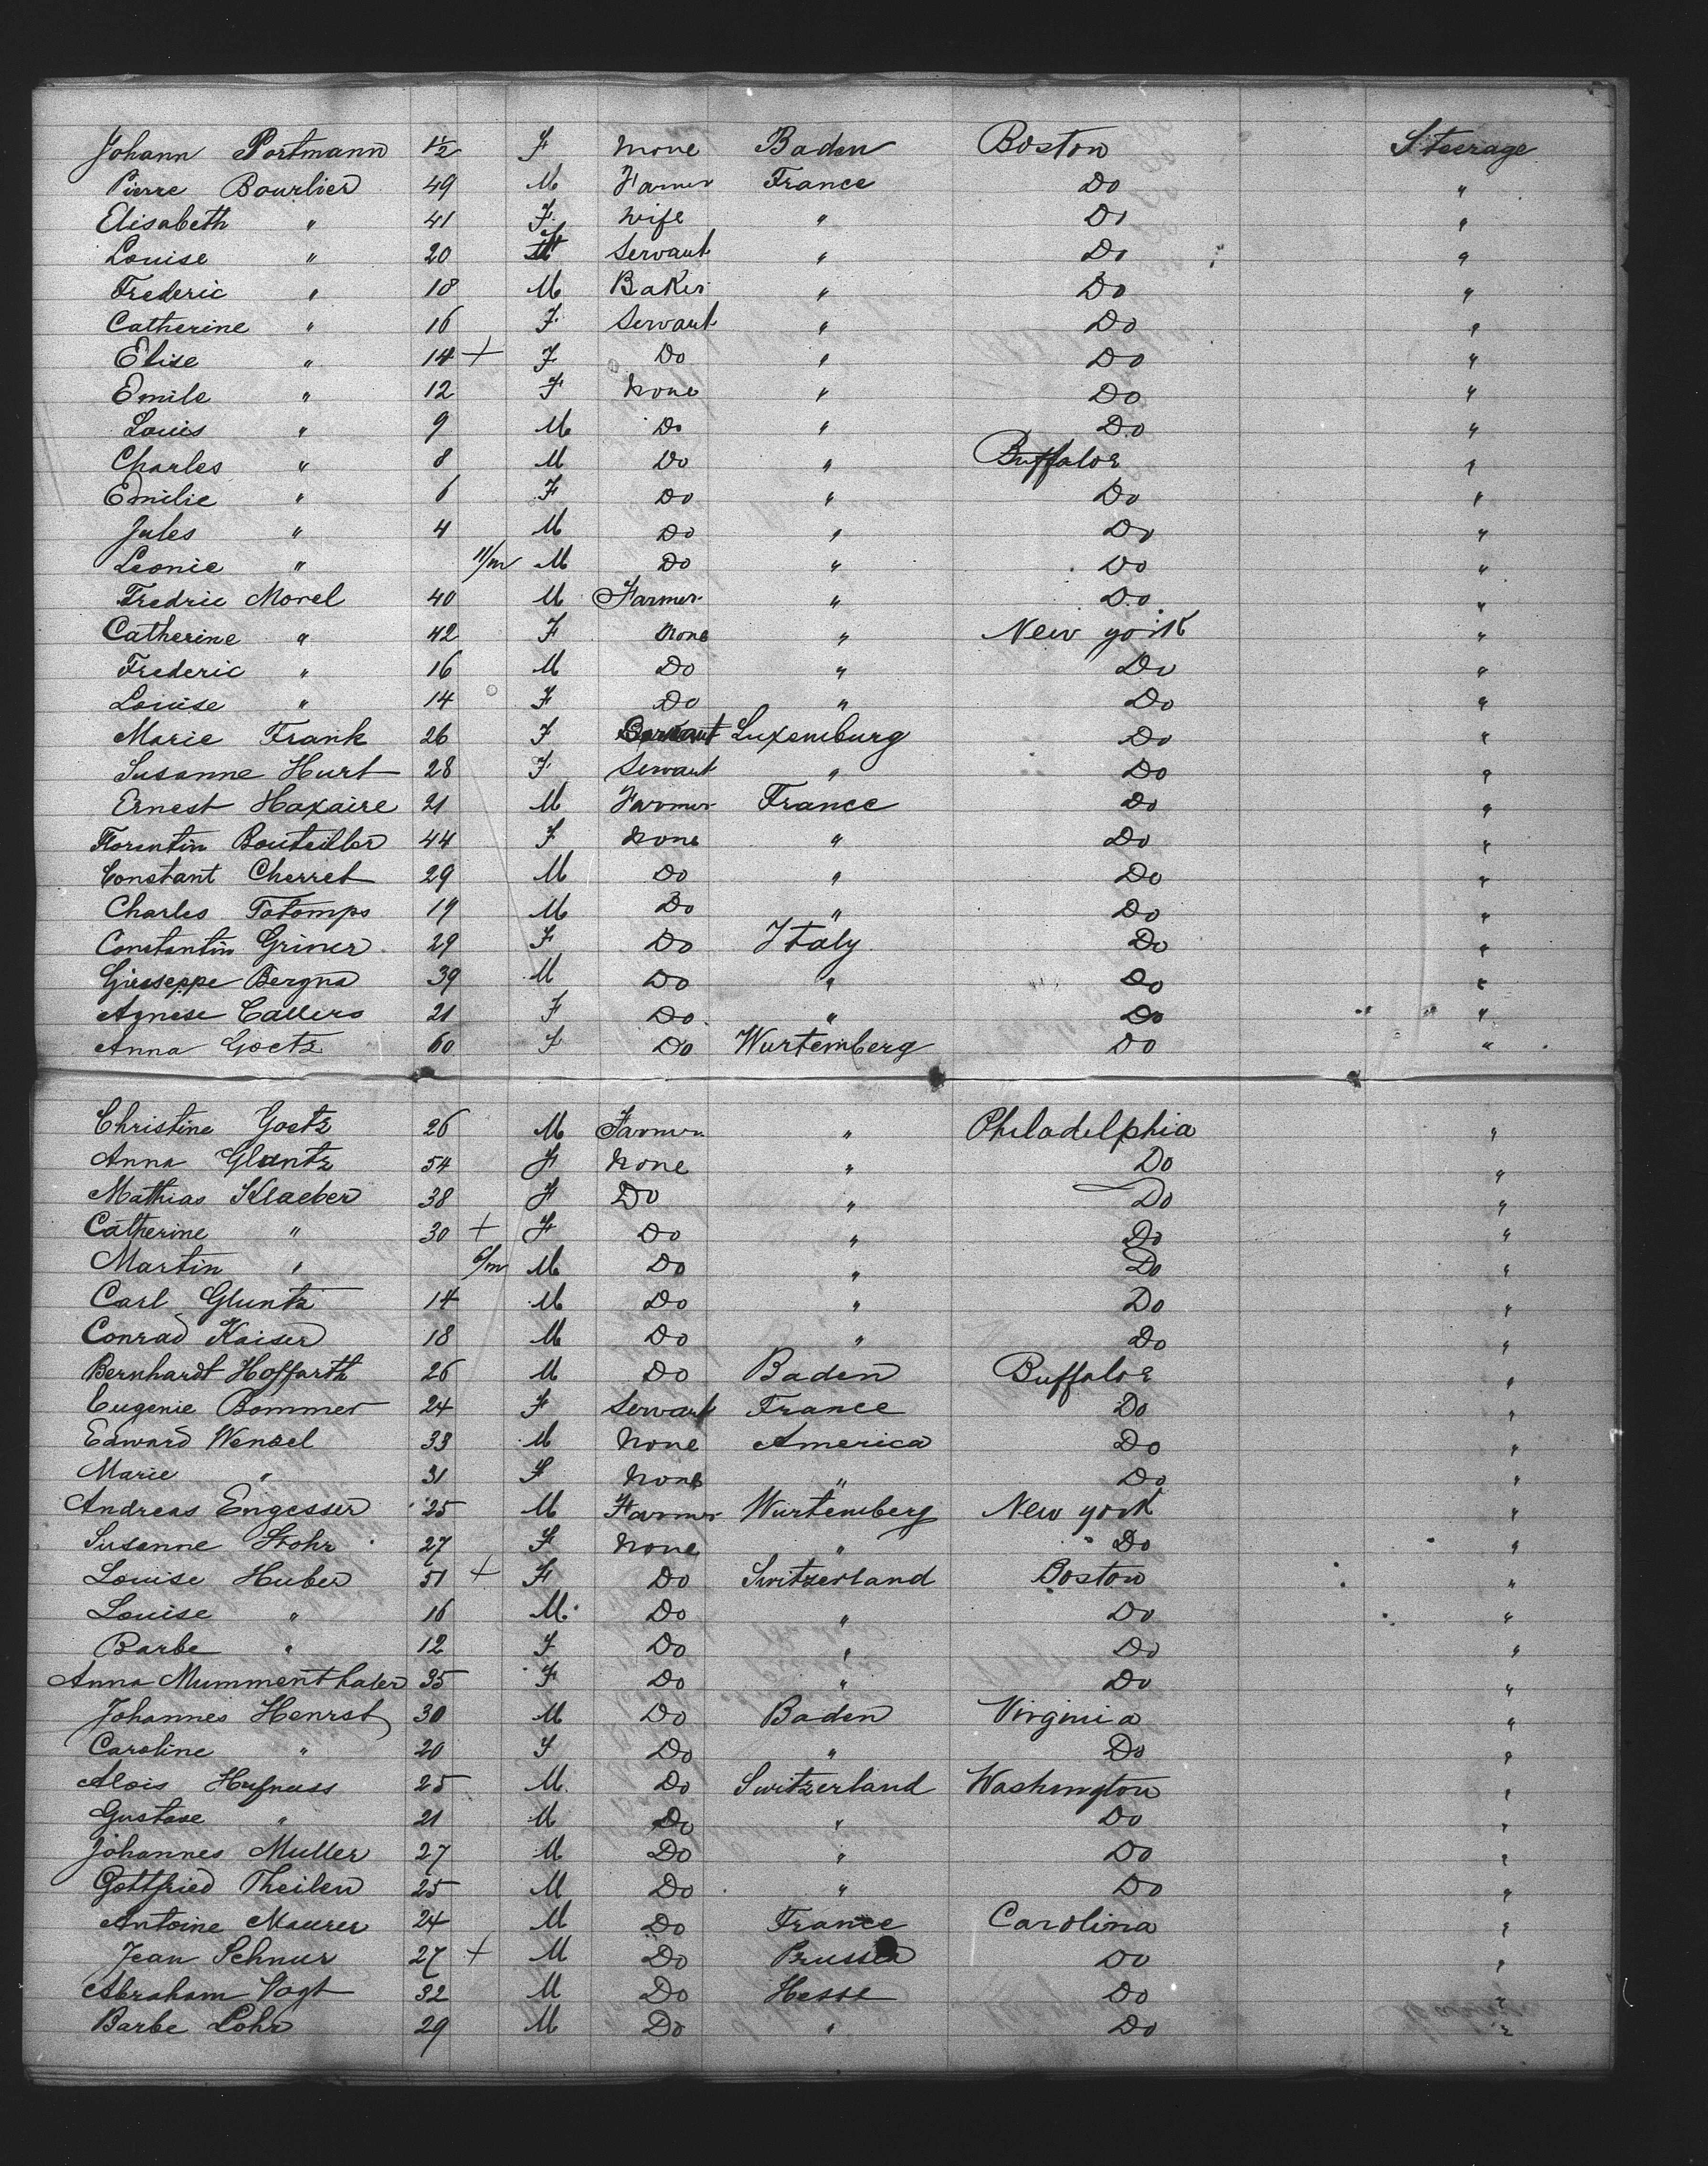 Johann Portmann 1½ F none Baden Boston Steerage
Pierre Bourlier 49 M Farmer France Do "
Elisabeth " 41 F wife " Do "
Louise " 20 F Servant " Do "
Frederic " 18 M Baker " Do "
Catherine " 16 F Servant " Do "
Elise " 14 + F Do " Do "
Emile " 12 F none " Do "
Louis " 9 M Do " Do "
Charles " 8 M Do " Buffaloe "
Emilie " 6 F Do " Do "
Jules " 4 M Do " Do "
Leonie " 11/m M Do " Do "
Fredric Morel 40 M Farmer " Do "
Catherine " 42 F none " New york "
Frederic " 16 M Do " Do "
Louise " 14 F Do " Do "
Marie Frank 26 F Servant Luxemburg Do "
Susanne Hurt 28 F Servant " Do "
Ernest Haxaire 21 M Farmer France Do "
Florentin Bouteiller 44 F none " Do "
Constant Cherret 29 M Do " Do "
Charles Totomps 19 M Do " Do "
Constantin Griner 29 F Do Italy Do "
Giuseppe Bergna 39 M Do " Do "
Agnese Callero 21 F Do " Do "
Anna Goetz 60 F Do Wurtemberg Do "
Christine Goetz 26 M Farmer " Philadelphia "
Anna Gluntz 54 F none " Do "
Mathias Klaeber 38 F Do " Do "
Catherine " 30 + F Do " Do "
Martin " 6/m M Do " Do "
Carl Gluntz 14 M Do " Do "
Conrad Kaiser 18 M Do " Do "
Bernhardt Hoffarth 26 M Do Baden Buffaloe "
Eugenie Bommer 24 F Servant France Do "
Edward Wensel 33 M none America Do "
Marie " 31 F none " Do "
Andreas Engesser 25 M Farmer Wurtemberg New york "
Susanne Stohr 27 F none " Do "
Louise Huber 51 + F Do Switzerland Boston "
Louise " 16 M Do " Do "
Barbe " 12 F Do " Do "
Anna Mummenthaler 35 F Do " Do "
Johannes Henrst 30 M Do Baden Virginia "
Caroline " 20 F Do " Do "
Alois Hufnuss 25 M Do Switzerland Washington "
Gustave " 21 M Do " Do "
Johannes Muller 27 M Do " Do "
Gottfried Theilen 25 M Do " Do "
Antoine Maurer 24 M Do France Carolina "
Jean Schnur 27 + M Do Prussia Do "
Abraham Vogt 32 M Do Hesse Do "
Barbe Lohr 29 M Do " Do "